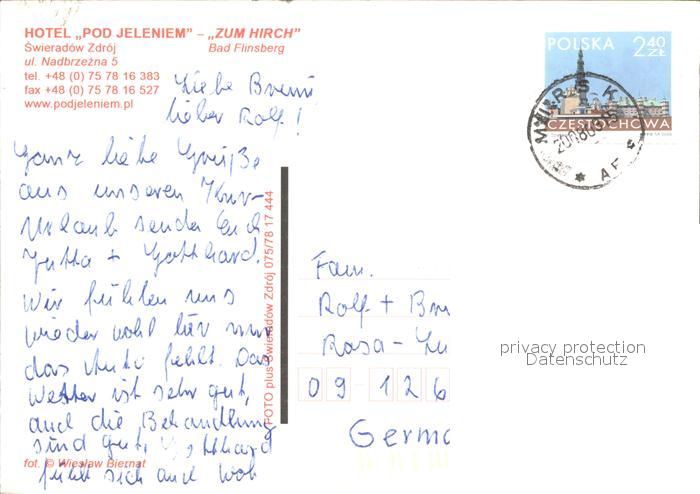 HOTEL „POD JELENIEM” – „ZUM HIRCH”
Świeradów Zdrój Bad Flinsberg
ul. Nadbrzeżna 5
tel. +48 (0) 75 78 16 383
fax +48 (0) 75 78 16 527
www.podjeleniem.pl
POLSKA 2,40 ZŁ
CZĘSTOCHOWA
Liebe
lieber Rolf!
Ganz liebe Grüße
aus unseren Kur-
Urlaub senden Euch
Jutta + Gotthard.
Wir fühlen uns
wieder wohl hier nur
das Auto fehlt. Das
Wetter ist sehr gut,
auch die Behandlung
sind gut, Gotthard
fühlt sich auch woh
FOTO plus Świeradów Zdrój 075/78 17 444
Fam.
Rolf +
Rosa-
09126
Germa
privacy protection
Datenschutz
fot. © Wiesław Biernat